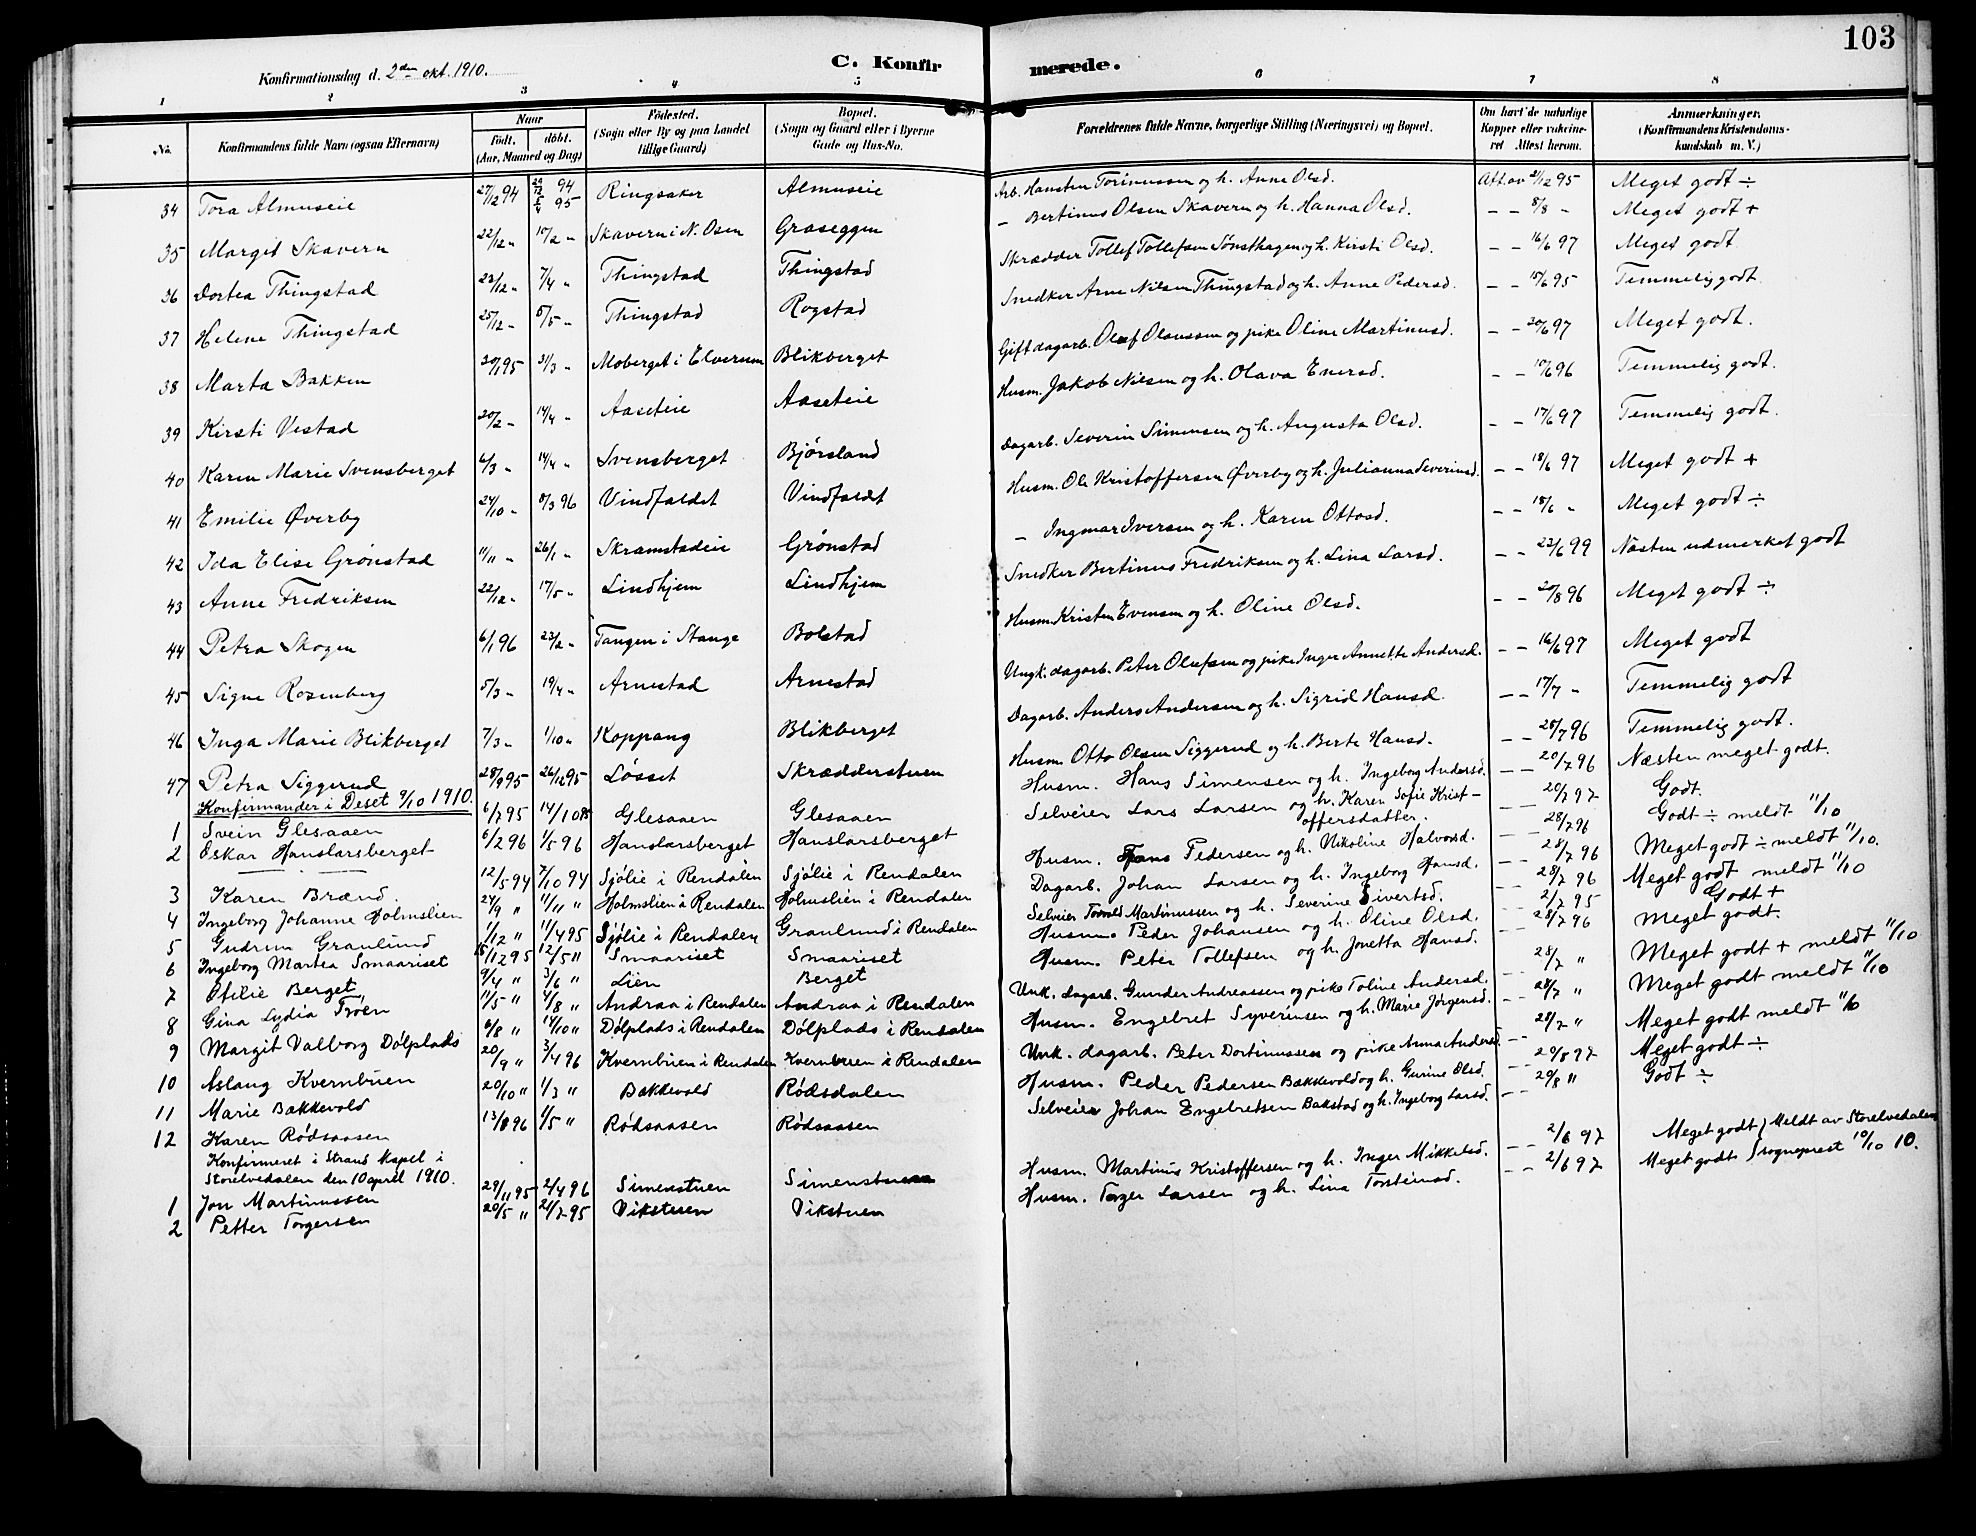 103
Konfirmationsdag d. 2den okt. 1910.
C. Konfirmerede.
1 2 3 4 5 6 7 8
No.
Konfirmandens fulde Navn (ogsaa Efternavn)
Naar
födt. döbt.
(Aar, Maaned og Dag)
Födested.
(Sogn eller By og paa Landet
tillige Gaard)
Bopæl.
(Sogn og Gaard eller i Byerne
Gade og Hus-No.
Forældrenes fulde Navne, borgerlige Stilling (Næringsvei) og Bopæl.
Om havt de naturlige
Kopper eller vakcine-
ret Attest herom.
Anmærkninger,
(Konfirmandens Kristendoms-
kundskab m. V.)
34 Tora Almuseie 27/12 94 94 95 Ringsaker Almuseie Arb. Hansten Torinussen og h. Anne Olsd. Att. av 21/12 95 Meget godt ÷
35 Margit Skavern 22/12 „ 10/2 „ Skavern i N. Osen Graseggen – Bertinus Olsen Skavern og h. Hanna Olsd. – – 8/8 – Meget godt +
36 Dortea Thingstad 23/12 „ 7/4 „ Thingstad Thingstad Skrædder Tollef Tollefsen Sønsthagen og h. Kirsti Olsd. – – 16/6 97 Meget godt
37 Helene Thingstad 25/12 – 5/5 – Thingstad Rogstad Snedker Arne Nilsen Thingstad og h. Anne Pedersd. – – 15/6 95 Temmelig godt
38 Marta Bakken 20/1 95 31/3 – Moberget i Elverum Blikberget Gift dagarb. Oluf Olaussen og pike Oline Martinusd. – – 20/6 97 Meget godt.
39 Kirsti Vestad 20/2 – 14/4 – Aaseteie Aaseteie Husm. Jakob Nilsen og h. Olava Enersd. – – 10/6 96 Temmelig godt.
40 Karen Marie Svensberget 6/3 „ 14/4 „ Svensberget Bjørsland Dagarb. Severin Simensen og h. Augusta Olsd. – – 17/6 97 Temmelig godt.
41 Emilie Øverby 24/10 „ 8/3 96 Vindfaldet Vindfaldet Husm. Ole Kristoffersen Øverby og h. Julianna Severinsd. – – 18/6 97 Meget godt +
42 Ida Elise Grønstad 11/11 „ 26/1 „ Skramstadeie Grønstad – Ingmar Iversen og h. Karen Ottosd. – – 18/6 „ Meget godt ÷
43 Anne Fredriksen 22/12 „ 17/5 „ Lindhjem Lindhjem Snedker Bertinus Fredriksen og h. Lina Larsd. – – 23/6 99 Næsten udmerket godt
44 Petra Skogen 6/1 96 23/2 „ Tangen i Stange Bolstad Husm. Kristen Evensen og h. Oline Olsd. – – 20/8 96 Meget godt ÷
45 Signe Rosenberg 5/3 „ 19/4 „ Arnestad Arnestad Ungk. dagarb. Peter Olufsen og pike Inger Annette Andersd. – – 16/6 97 Meget godt
46 Inga Marie Blikberget 7/3 „ 1/10 „ Koppang Blikberget Dagarb. Anders Andersen og h. Sigrid Hansd. – – 17/7 „ Temmelig godt
47 Petra Siggerud 28/9 95 26/12 95 Løsset Skrædderstuen Husm Otto Olsen Siggerud og h. Berte Hansd. – – 28/7 96 Temmelig godt.
Konfirmander i Deset 9/10 1910.
1 Svein Glesaaen 6/7 95 14/10 95 Glesaaen Glesaaen Husm. Hans Simensen og h. Ingeborg Andersd. – – 20/7 96 Næsten meget godt.
2 Oskar Hanslarsberget 6/2 96 1/5 96 Hanslarsberget Hanslarsberget Selveier Lars Larsen og h. Karen Sofie Kristoffersdatter. – – 20/7 97 Godt.
3 Karen Brænd 12/5 94 7/10 94 Sjølie i Rendalen Sjølie i Rendalen Husm. Hans Pedersen og h. Nikoline Halvorsd. – – 28/7 96 Godt ÷ meldt 11/10
4 Ingeborg Johanne Holmslien 24/9 „ 11/11 „ Holmslien i Rendalen Holmslien i Rendalen Dagarb. Johan Larsen og h. Ingeborg Hansd. – – 28/7 96 Meget godt ÷ meldt 11/10.
5 Gudrun Granlund 1/12 „ 11/4 95 Sjølie i Rendalen Granlund i Rendalen Selveier Torvald Martinussen og h. Severine Sivertsd. – – 28/7 96 Meget godt meldt 11/10
6 Ingeborg Martea Smaariset 15/12 95 12/5 „ Smaariset Smaariset Husm. Peder Johansen og h. Oline Olsd. – – 2/7 95 Godt +
7 Otilie Berget 9/4 „ 3/6 „ Lien Berget Husm. Peter Tollefsen og h. Jonetta Hansd. – – 28/7 96 Meget godt.
8 Gina Lydia Troen 11/5 „ 4/8 „ Andraa i Rendalen Andraa i Rendalen Unk. dagarb. Gunder Andreassen og pike Toline Andersd. – – 28/7 „ Meget godt + meldt 11/10
9 Margit Valborg Dölplads 6/8 „ 14/10 „ Dölplads i Rendalen Dölplads i Rendalen Husm. Engebret Syverinsen og h. Marie Jørgensd. – – 28/7 „ Meget godt meldt 11/10
10 Aslaug Kvernbuen 20/9 „ 3/4 96 Kvernbuen i Rendalen Kvernbuen i Rendalen Unk. dagarb. Peter Dortinussen og pike Anna Andersd. – – 28/7 „ Meget godt meldt 11/10
11 Marie Bakkevold 20/10 „ 1/3 „ Bakkevold Rødsdalen Husm. Peder Pedersen Bakkevold og h. Gurine Olsd. – – 29/8 97 Meget godt ÷
12 Karen Rödsaasen 13/8 96 1/5 „ Rødsaasen Rødsaasen Selveier Johan Engebretsen Bakstad og h. Ingeborg Larsd. – – 29/8 „ Godt ÷
Konfirmeret i Strand Kapel i
Storelvedalen den 10 april 1910.
1 Jon Martinussen 29/11 95 2/4 96 Simenstuen Simenstuen Husm. Martinus Kristoffersen og h. Inger Mikkelsd. – – 2/6 97 Meget godt } Meldt av Storelvedalen
2 Petter Torgersen 20/5 „ 21/7 95 Vikstuen Vikstuen Husm. Torger Larsen og h. Lina Torstensd. – – 2/6 97 Meget godt. Sogneprest 10/10 10.